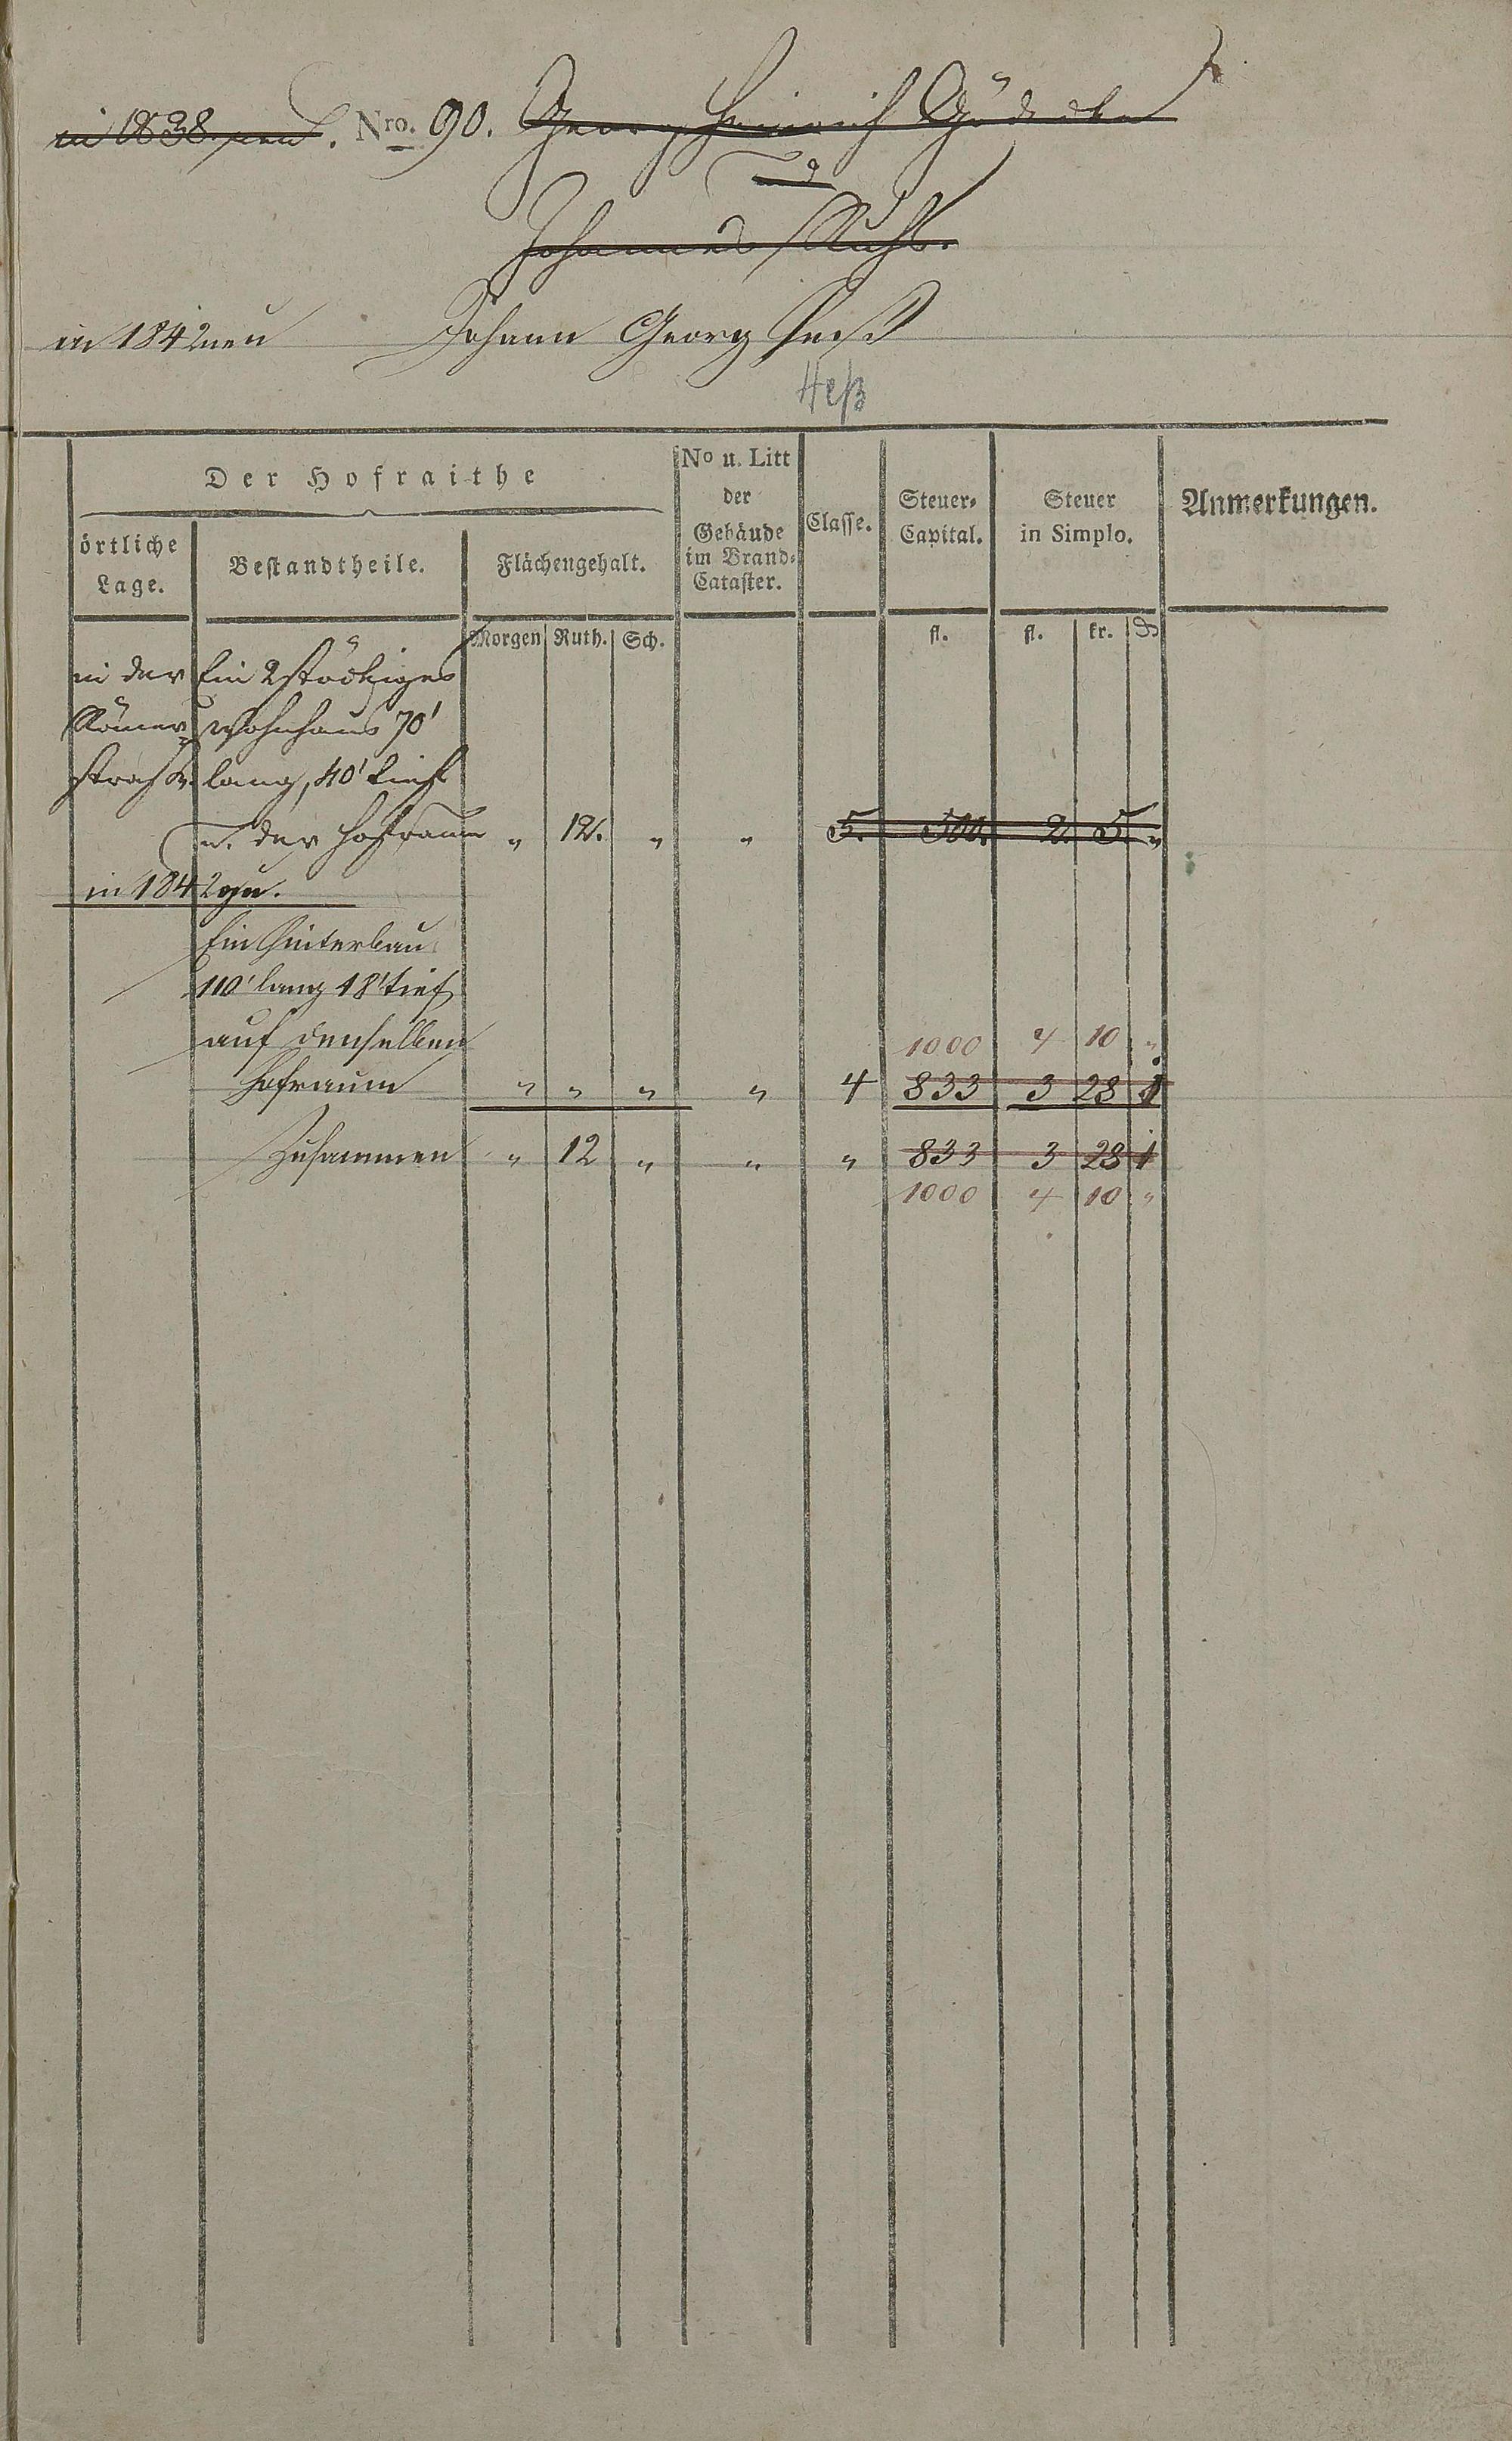 in 1838 neu. Nro. 90. Georg Heinrich
und
Johannes Ruhl.
in 1842 neu Johann Georg Heß
Heß
Der Hofraithe
örtliche Lage.
Bestandtheile.
Flächengehalt.
No u. Litt der Gebäude im Brand-Cataster.
Classe.
Steuer-Capital.
Steuer in Simplo.
Anmerkungen.
Morgen Ruth. Sch. fl. fl. kr. ₰
in der Ein 2stöckiges
Römer- Wohnhaus 70'
straße. lang, 40' tief
u. der Hofraum " 12. " " 5. 500. 2. 5. "
in 1842 zu.
Ein Hinterbau
110' lang 18' tief
auf denselben 1000 4 10 "
Hofraum " " " " 4 833 3 28 1
Zusammen " 12 " " " 833 3 28 1
1000 4 10 "